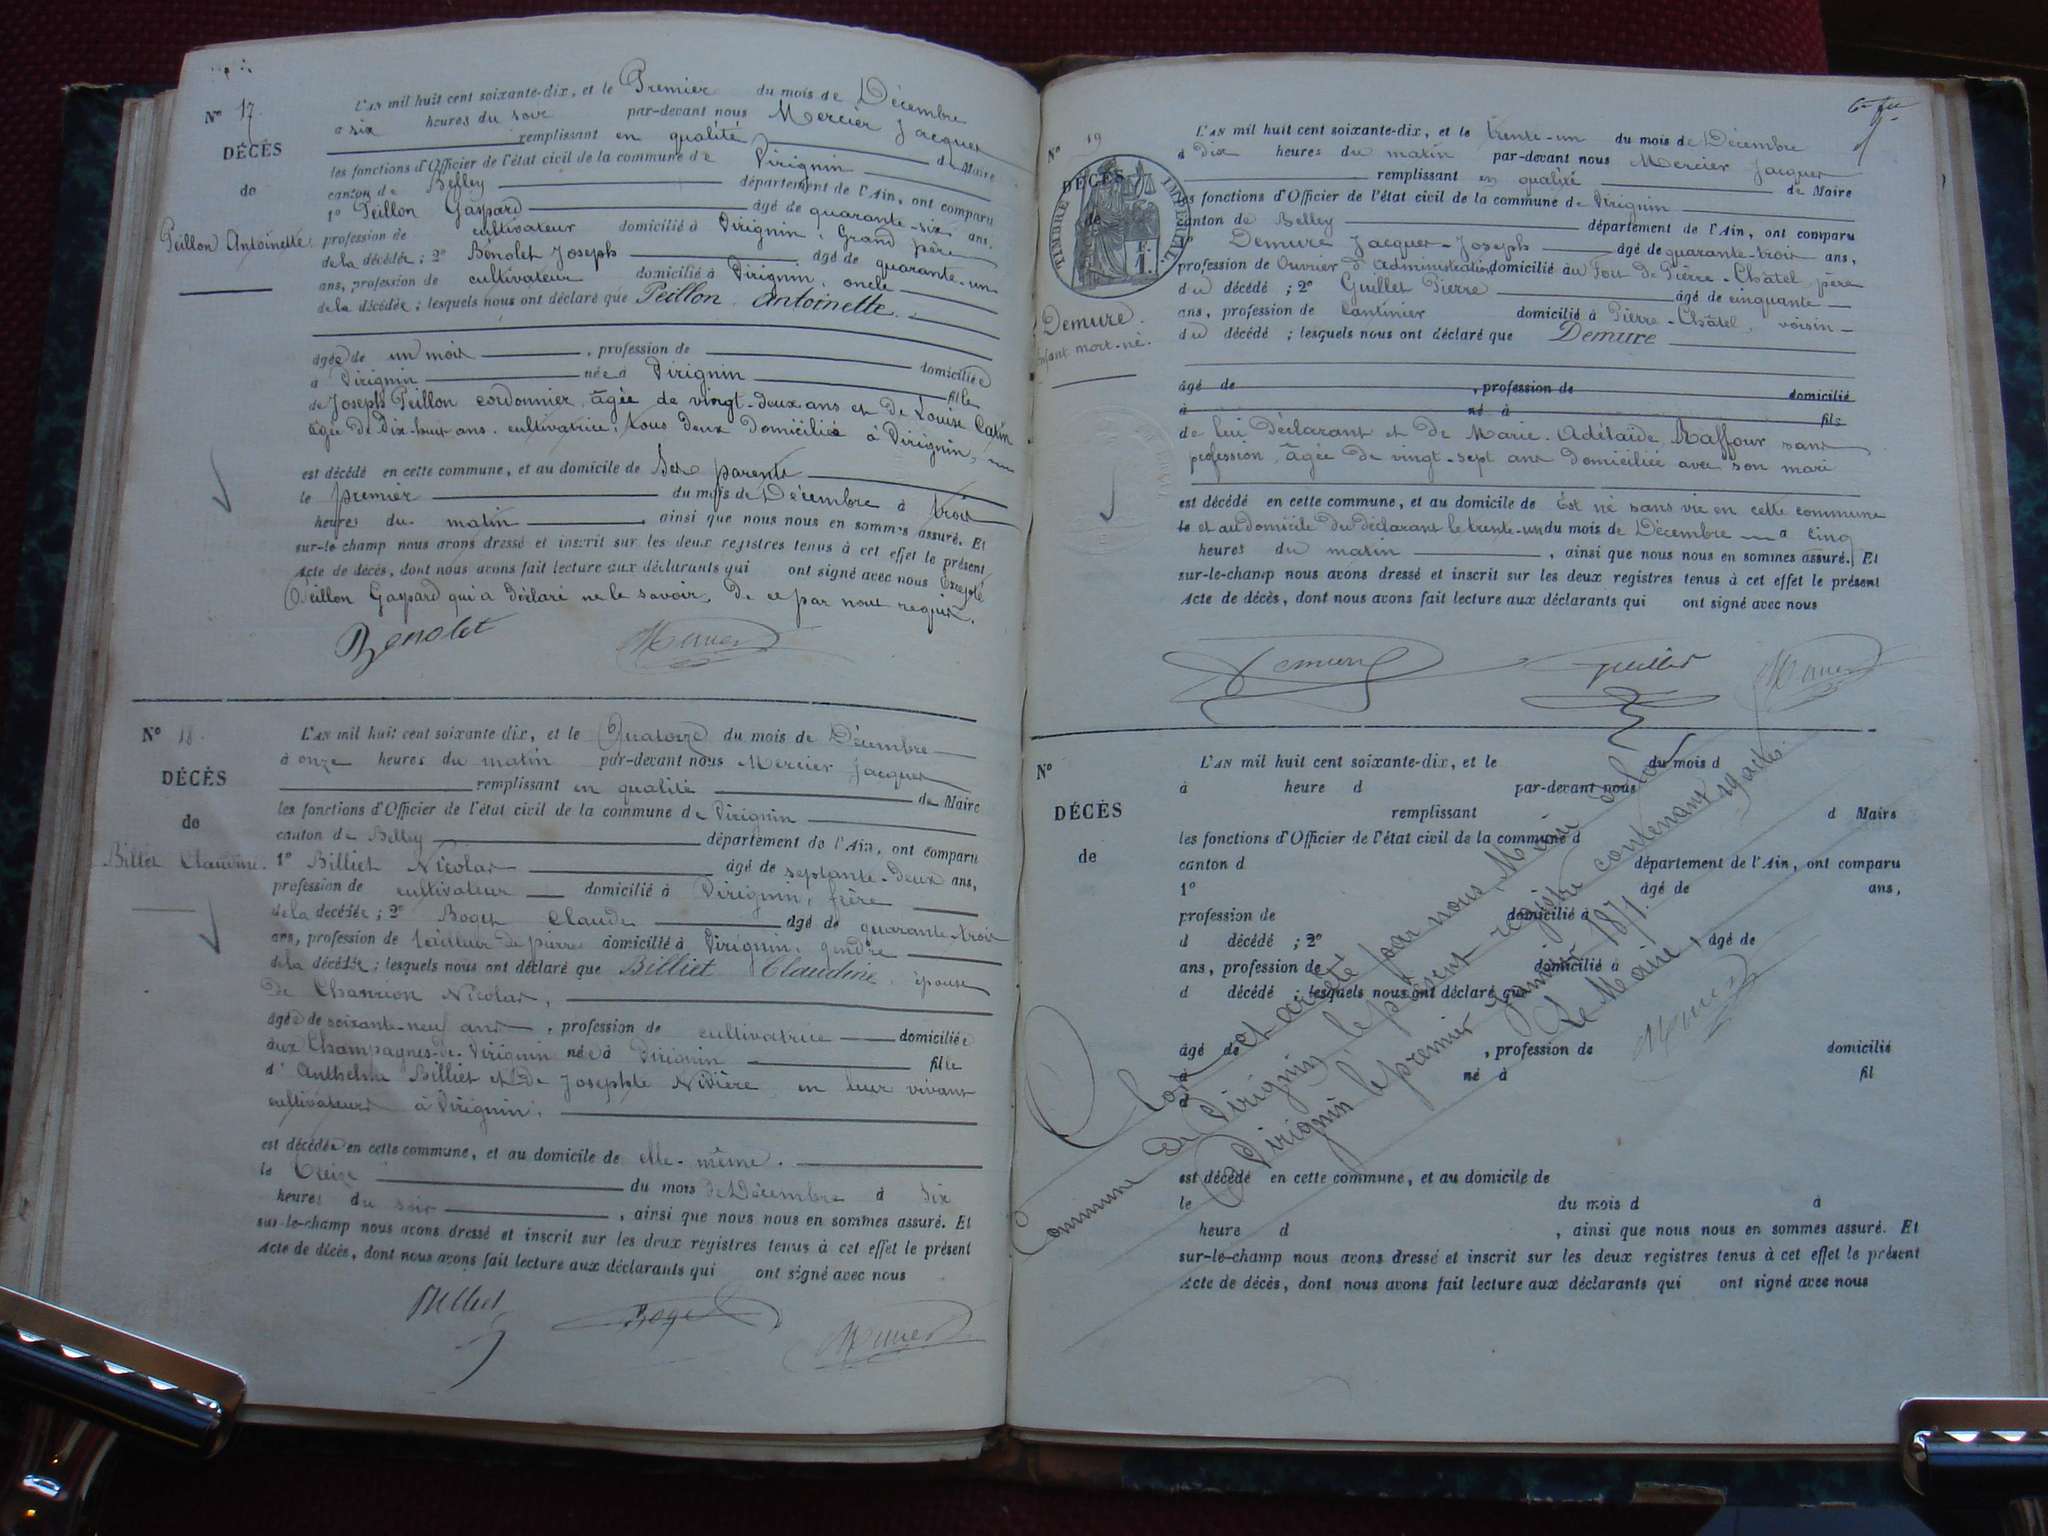 Nº 17
DÉCÈS
de
Peillon Antoinette
L'AN mil huit cent soixante-dix, et le Premier du mois de Décembre
à six heures du soir par-devant nous Mercier Jacques
remplissant en qualité de Maire
les fonctions d'Officier de l'état civil de la commune de Virignin
canton de Belley département de l'Ain, ont comparu
1º Peillon Gaspard âgé de quarante-six ans,
profession de cultivateur domicilié à Virignin, Grand père
de la décédée ; 2º Bénolet Joseph âgé de quarante-un
ans, profession de cultivateur domicilié à Virignin, oncle
de la décédée ; lesquels nous ont déclaré que Peillon Antoinette
âgée de un mois , profession de domiciliée
à Virignin née à Virignin fille
de Joseph Peillon cordonnier, âgée de vingt-deux ans et de Louise Catin
âgée de dix-huit ans, cultivatrice, tous deux domiciliés à Virignin,
est décédé en cette commune, et au domicile de ses parents
le premier du mois de Décembre à trois
heures du matin , ainsi que nous nous en sommes assuré. Et
sur-le-champ nous avons dressé et inscrit sur les deux registres tenus à cet effet le présent
Acte de décès, dont nous avons fait lecture aux déclarants qui ont signé avec nous Excepté
Peillon Gaspard qui a déclaré ne le savoir, de ce par nous requis.
Benolet Mercier
Nº 18.
DÉCÈS
de
Billet Claudine.
L'AN mil huit cent soixante-dix, et le Quatorze du mois de Décembre
à onze heures du matin par-devant nous Mercier Jacques
remplissant en qualité de Maire
les fonctions d'Officier de l'état civil de la commune de Virignin
canton de Belley département de l'Ain, ont comparu
1º Billiet Nicolas âgé de septante-deux ans,
profession de cultivateur domicilié à Virignin, frère
de la décédée ; 2º Boget Claude âgé de quarante-trois
ans, profession de tailleur de pierre domicilié à Virignin, gendre
de la décédée ; lesquels nous ont déclaré que Billiet Claudine, épouse
de Chanrion Nicolas,
âgée de soixante-neuf ans , profession de cultivatrice domiciliée
aux Champagnes-de-Virignin née à Virignin fille
d'Anthelme Billiet et de Josephte Nivière en leur vivant
cultivateurs à Virignin,
est décédée en cette commune, et au domicile de elle-même.
le treize du mois de Décembre à six
heures du soir , ainsi que nous nous en sommes assuré. Et
sur-le-champ nous avons dressé et inscrit sur les deux registres tenus à cet effet le présent
Acte de décès, dont nous avons fait lecture aux déclarants qui ont signé avec nous
Billiet Boget Mercier
Nº 19
DÉCÈS
de
TIMBRE IMPÉRIAL.
Demure.
enfant mort-né.
L'AN mil huit cent soixante-dix, et le trente-un du mois de Décembre
à dix heures du matin par-devant nous Mercier Jacques
remplissant en qualité de Maire
les fonctions d'Officier de l'état civil de la commune de Virignin
canton de Belley département de l'Ain, ont comparu
1º Demure Jacques-Joseph âgé de quarante-trois ans,
profession de Ouvrier d'Administration domicilié au Fort de Pierre-Châtel, père
du décédé ; 2º Guillet Pierre âgé de cinquante
ans, profession de Cantinier domicilié à Pierre-Châtel, voisin
du décédé ; lesquels nous ont déclaré que Demure
âgé de , profession de domicilié
à né à fils
de lui déclarant et de Marie-Adélaïde Raffour sans
profession, âgée de vingt-sept ans domiciliée avec son mari
est décédé en cette commune, et au domicile de Est né sans vie en cette commune
le et au domicile du déclarant le trente-un du mois de Décembre à cinq
heures du matin , ainsi que nous nous en sommes assuré. Et
sur-le-champ nous avons dressé et inscrit sur les deux registres tenus à cet effet le présent
Acte de décès, dont nous avons fait lecture aux déclarants qui ont signé avec nous
Demure Guillet Mercier
Nº
DÉCÈS
de
L'AN mil huit cent soixante-dix, et le du mois d
à heure d par-devant nous
remplissant d Maire
les fonctions d'Officier de l'état civil de la commune d
canton d département de l'Ain, ont comparu
1º âgé de ans,
profession de domicilié à
d décédé ; 2º , âgé de
ans, profession de domicilié à
d décédé ; lesquels nous ont déclaré que
âgé de , profession de domicilié
à né à fil
d
est décédé en cette commune, et au domicile de
le du mois d à
heure d , ainsi que nous nous en sommes assuré. Et
sur-le-champ nous avons dressé et inscrit sur les deux registres tenus à cet effet le présent
Acte de décès, dont nous avons fait lecture aux déclarants qui ont signé avec nous
Clos et arrêté par nous, Maire de la
Commune de Virignin, le présent registre contenant 19 actes.
Virignin, le premier Janvier 1871.
Le Maire,
Mercier